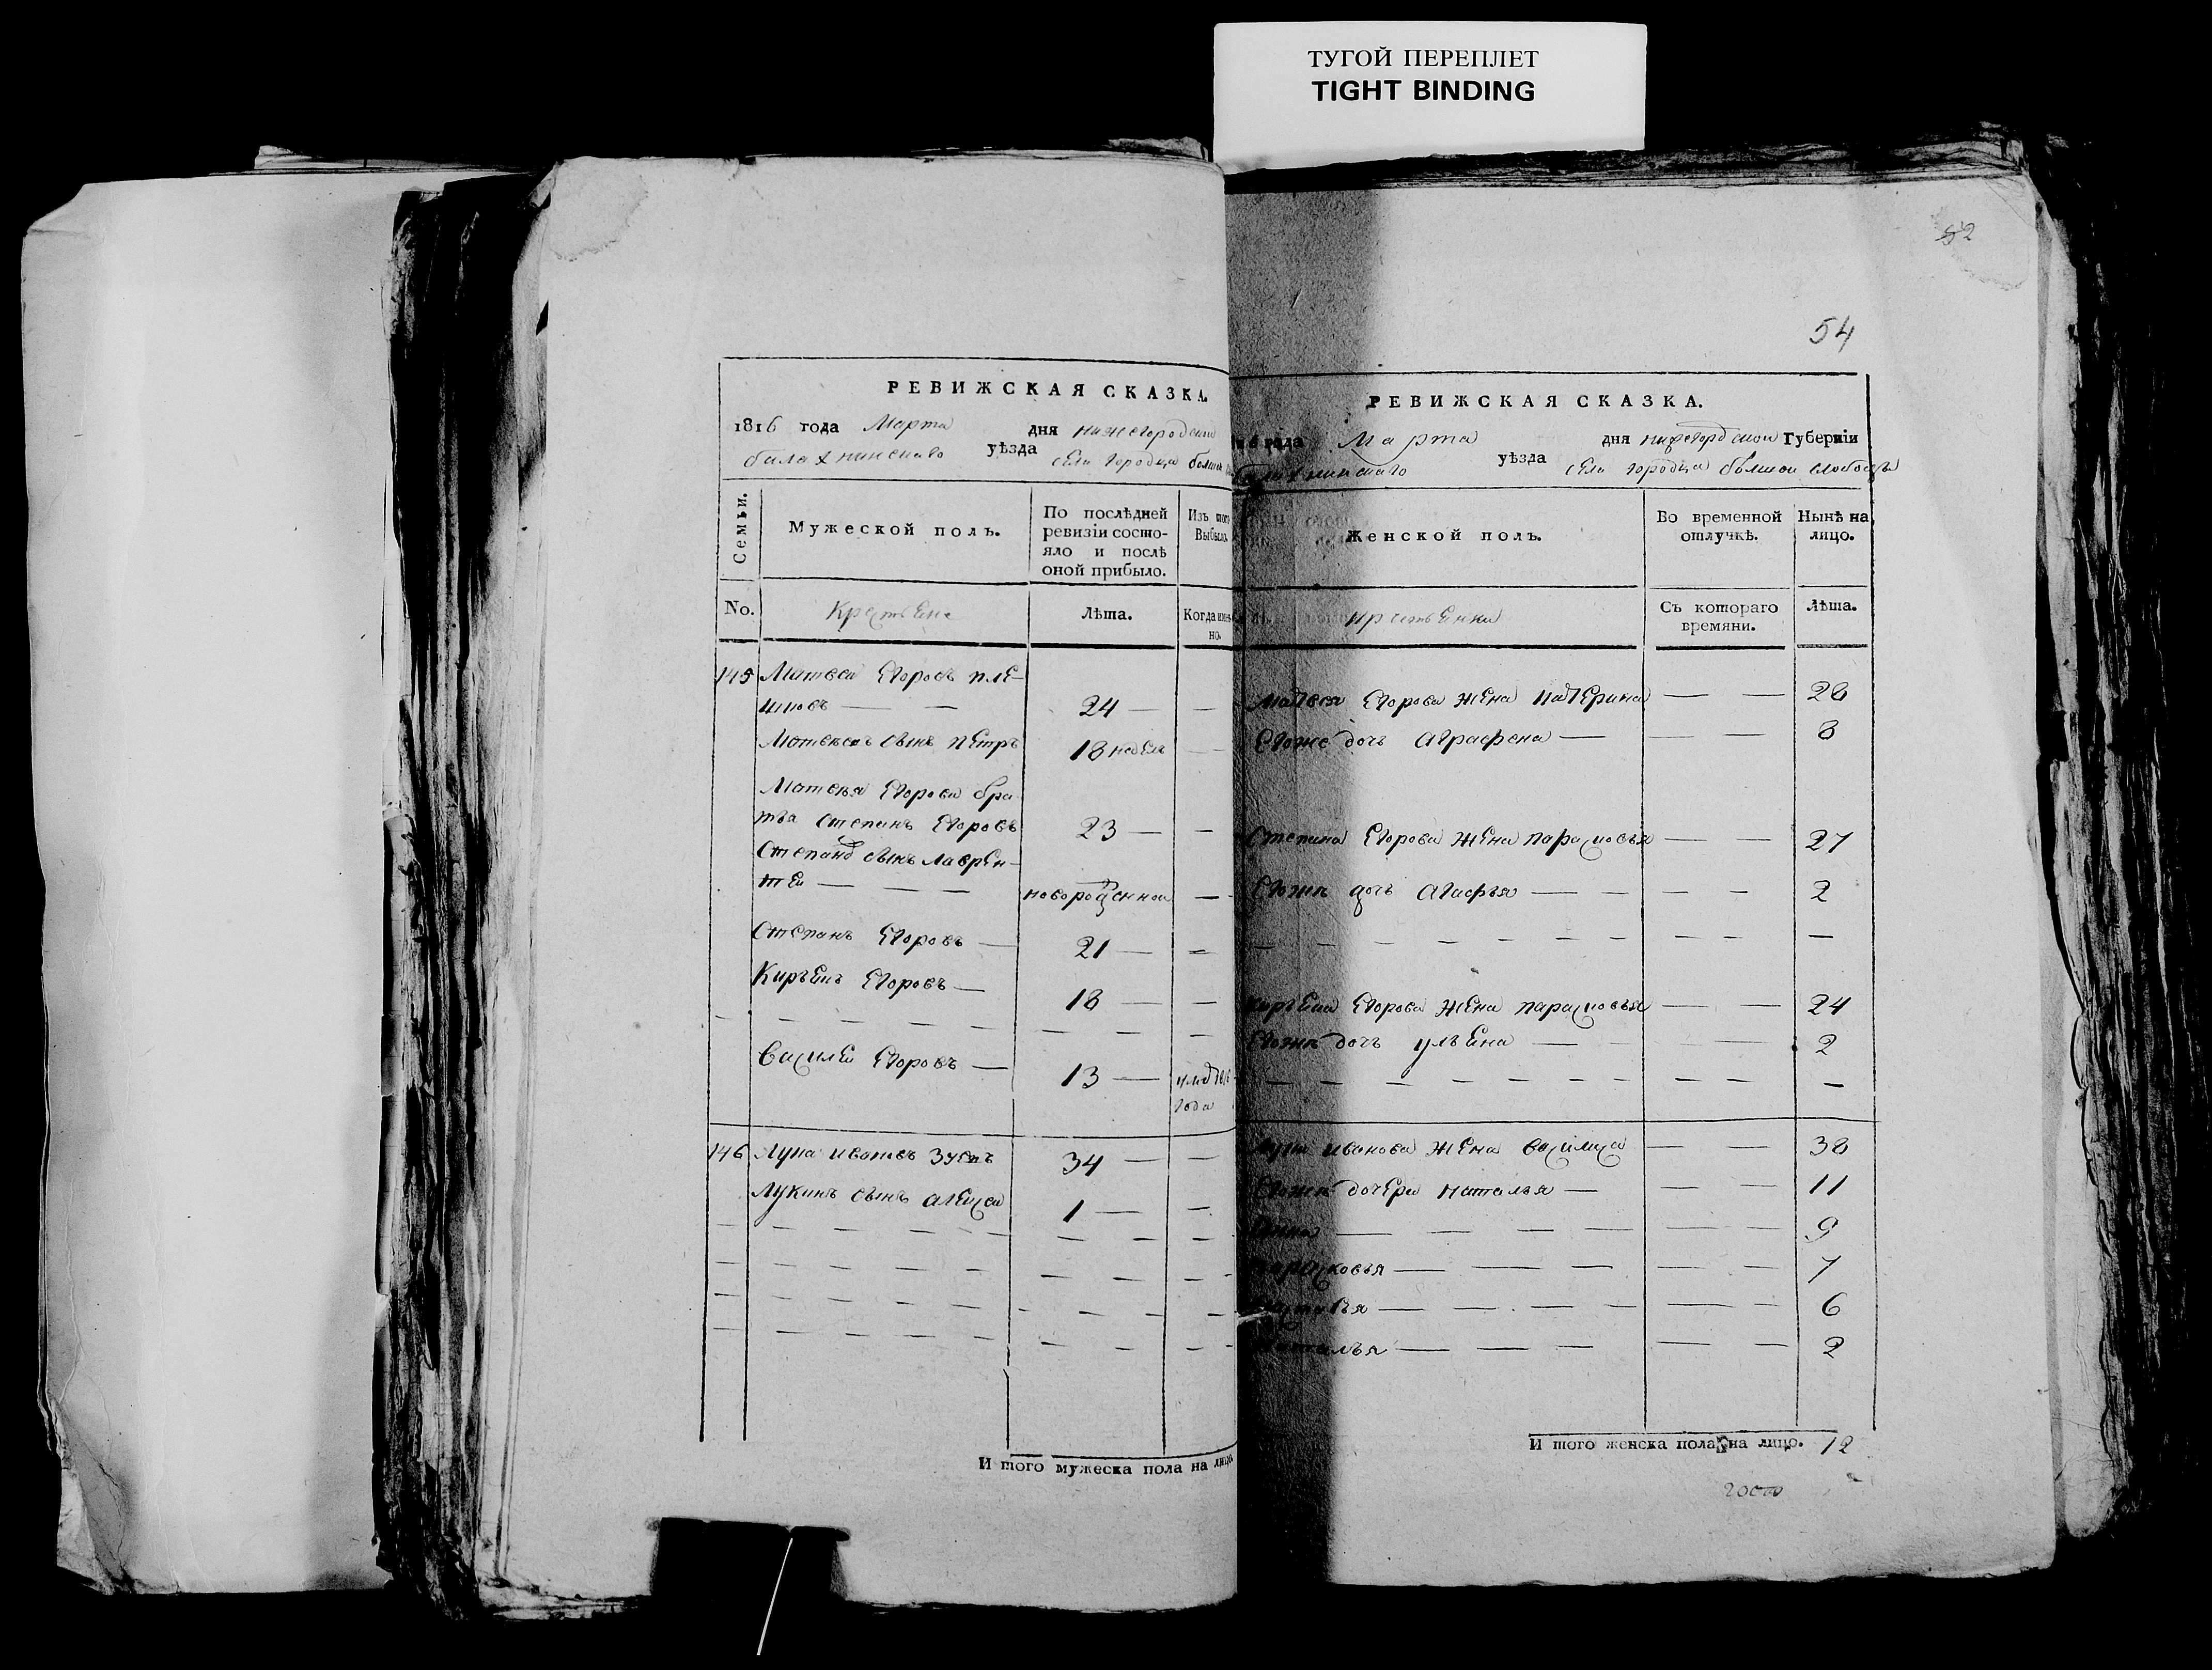 ТУГОЙ ПЕРЕПЛЕТ
TIGHT BINDING
РЕВИЖСКАЯ СКАЗКА.
1816 года Марта дня нижегородской
балахнинскаго уѣзда села городца болшой
Семьи.
Мужеской полъ.
По послѣдней ревизіи состояло и послѣ оной прибыло.
Изъ того Выбыло.
No.
Крестьяне
Лѣта.
Когда именно.
145 Матвей Егоровъ пле-
24
Матвеевъ сынъ Петръ 18 недель
Матвея Егорова бра-
тья Степанъ Егоровъ 23
Степана сынъ Лаврен-
тей новорожденной
Степанъ Егоровъ 21
Егоровъ 18
Василей Егоровъ 13
года
146 Лука Ивановъ 34
Лукинъ сынъ Алексей 1
И того мужеска пола на лицо
52
54
РЕВИЖСКАЯ СКАЗКА.
года Марта дня нижегородской Губерніи
балахнинскаго уѣзда села городца болшой слободы
Женской полъ.
Во временной отлучкѣ.
Нынѣ на лицо.
крестьянки
Съ котораго времяни.
Лѣта.
Матвея Егорова жена Катерина 28
Егоже дочь Аграфена 8
Степана Егорова жена Парасковья 27
Егоже дочь Агафья 2
Егорова жена Парасковья 24
Егоже дочь Ульена 2
Луки Иванова жена Василиса 38
Егоже дочери Наталья 11
9
Парасковья 7
6
Наталья 2
И того женска пола на лицо. 12